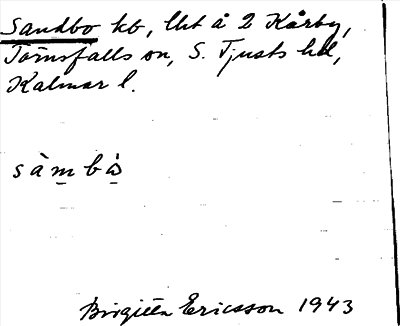 Sandbo kb, lht å 2 Kårby,
Törnsfalls sn, S. Tjusts hd,
Kalmar l.
sàm̲bȧ̲
Birgitta Ericsson 1943